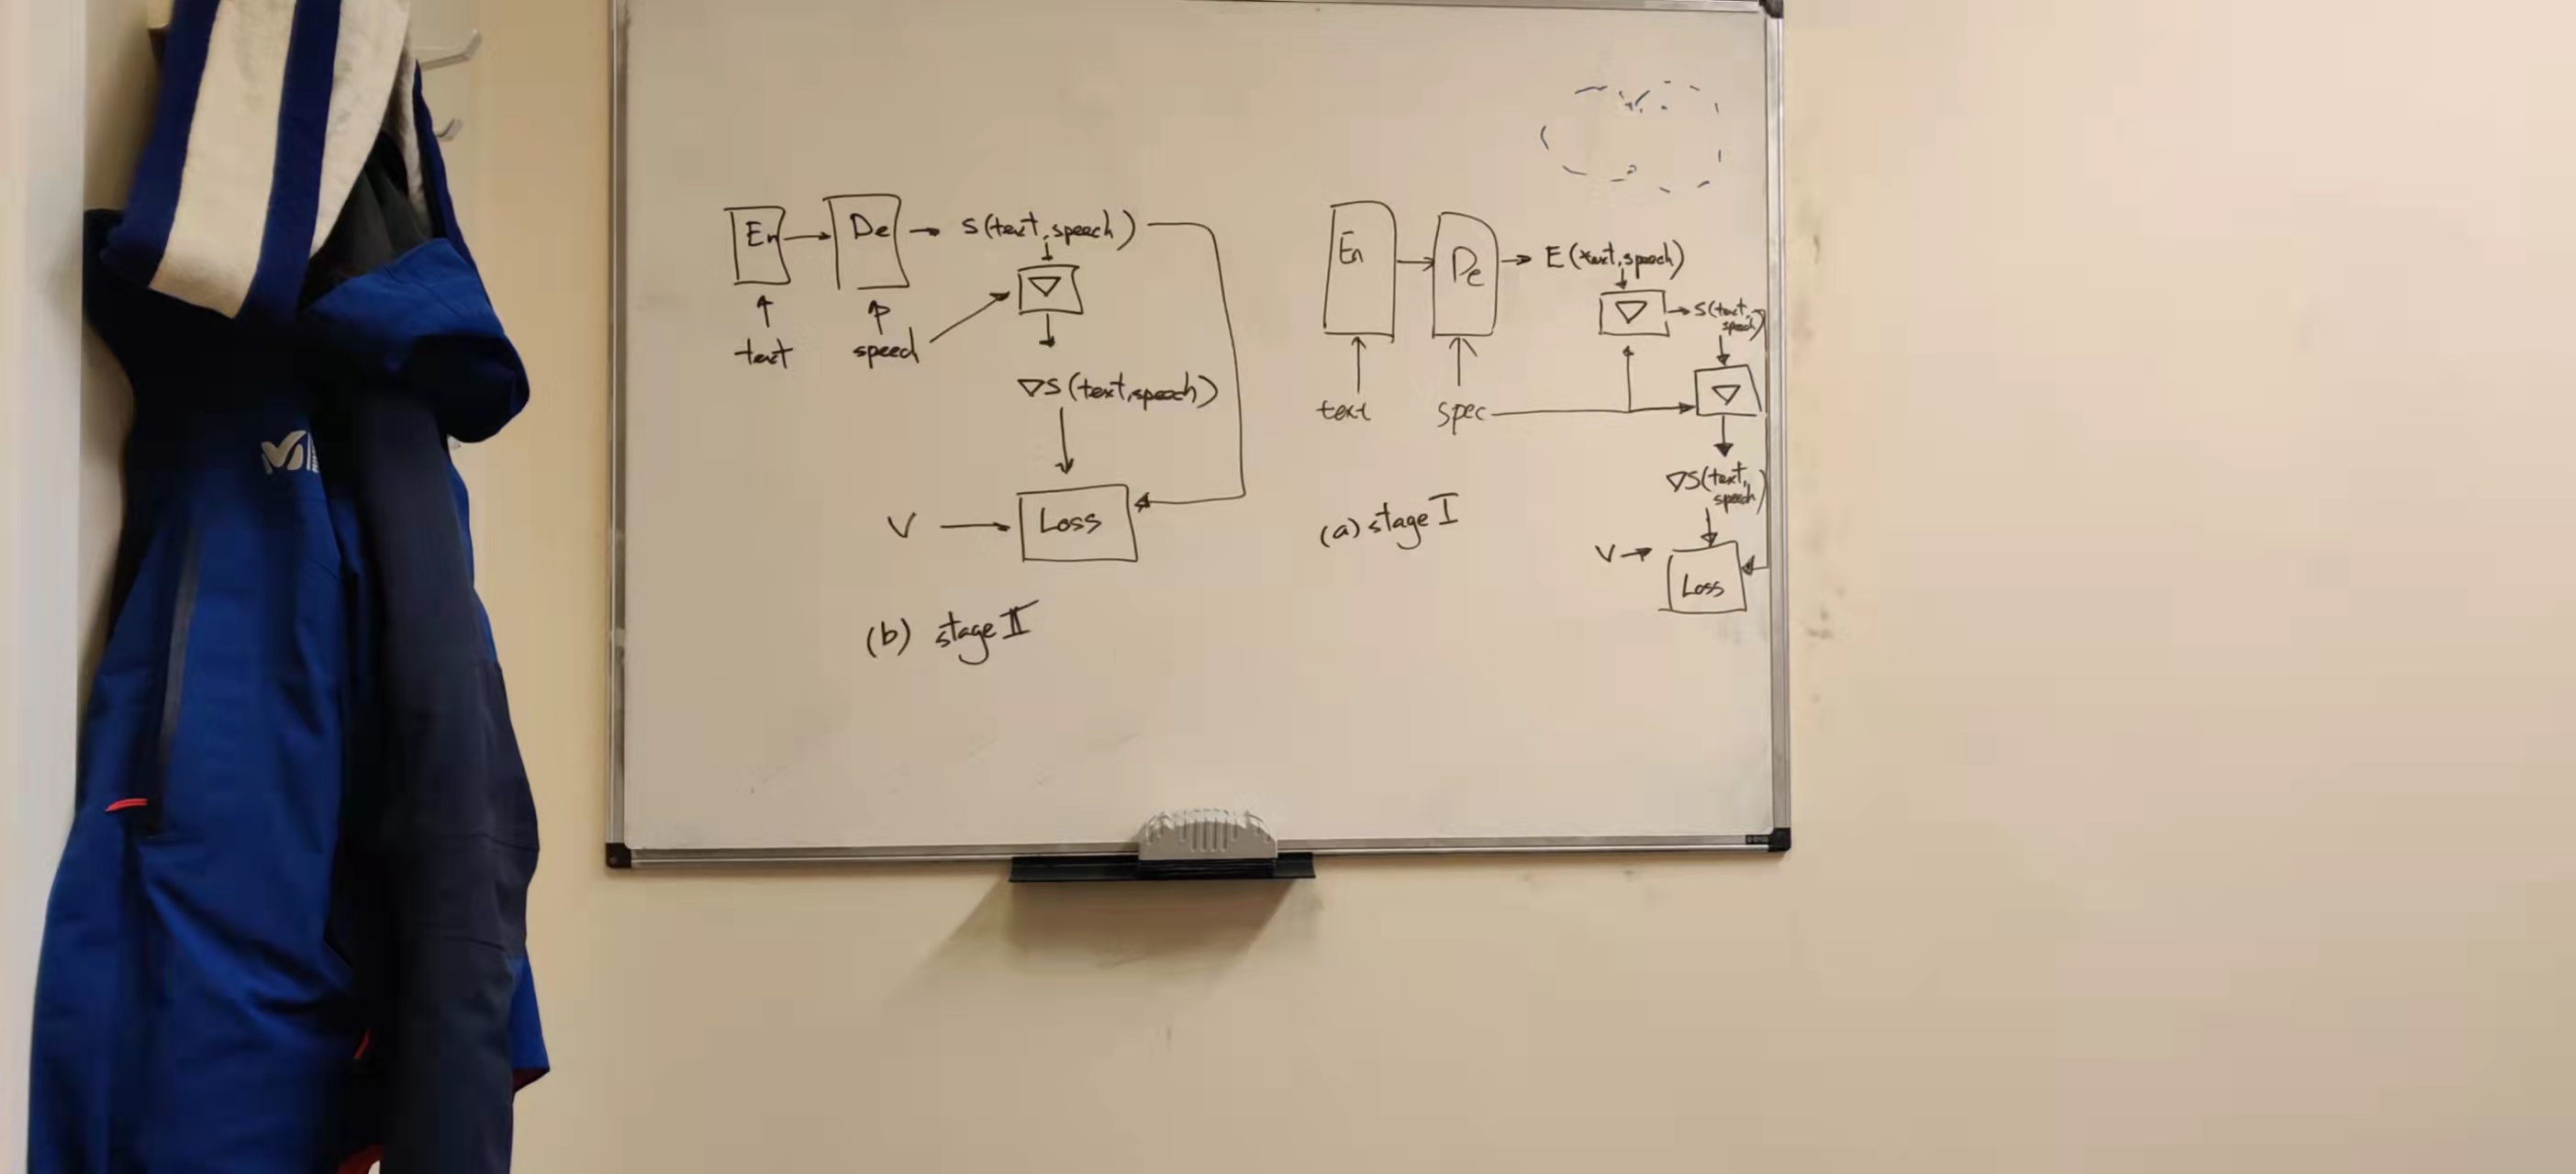 En
De
s(text, speech)
▽
text
speech
▽s(text, speech)
V
Loss
(b) stage II
En
De
E(text, speech)
▽
s(text,
speech)
▽
text
spec
▽s(text,
speech)
V
Loss
(a) stage I